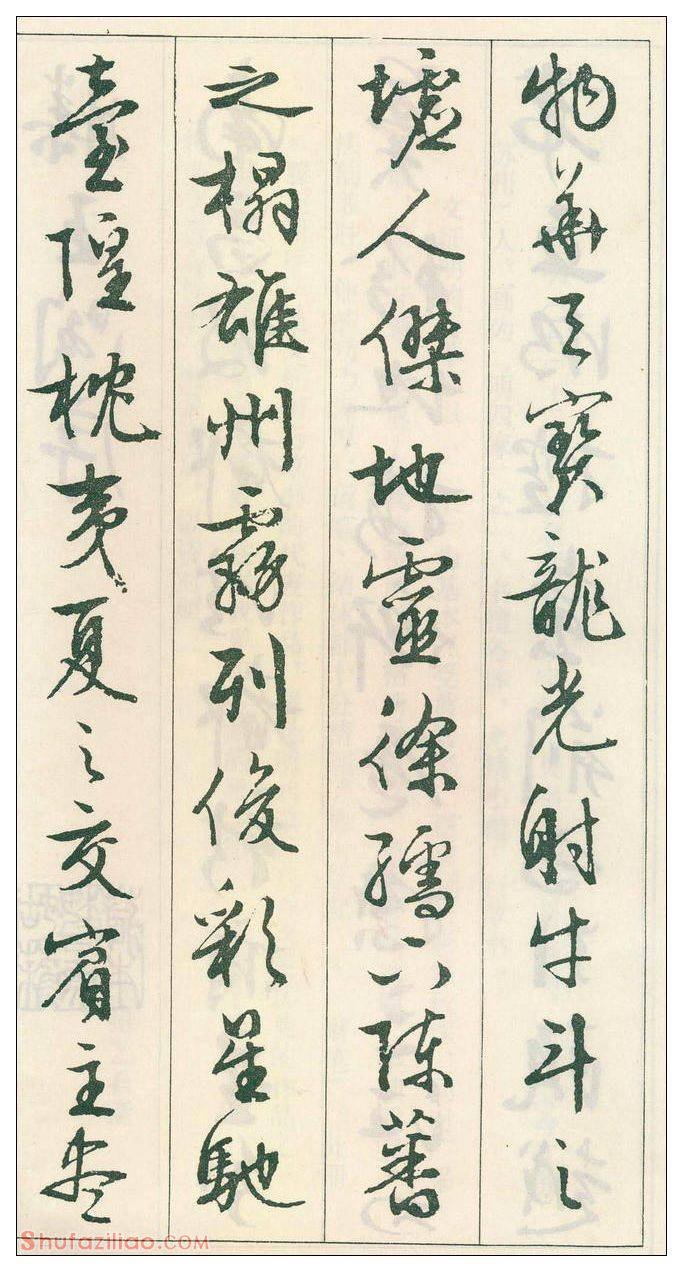 物華天寶龍光射牛斗之
墟人傑地靈徐孺下陳蕃
之榻雄州霧列俊彩星馳
臺隍枕夷夏之交賓主盡
Shufaziliao.COM